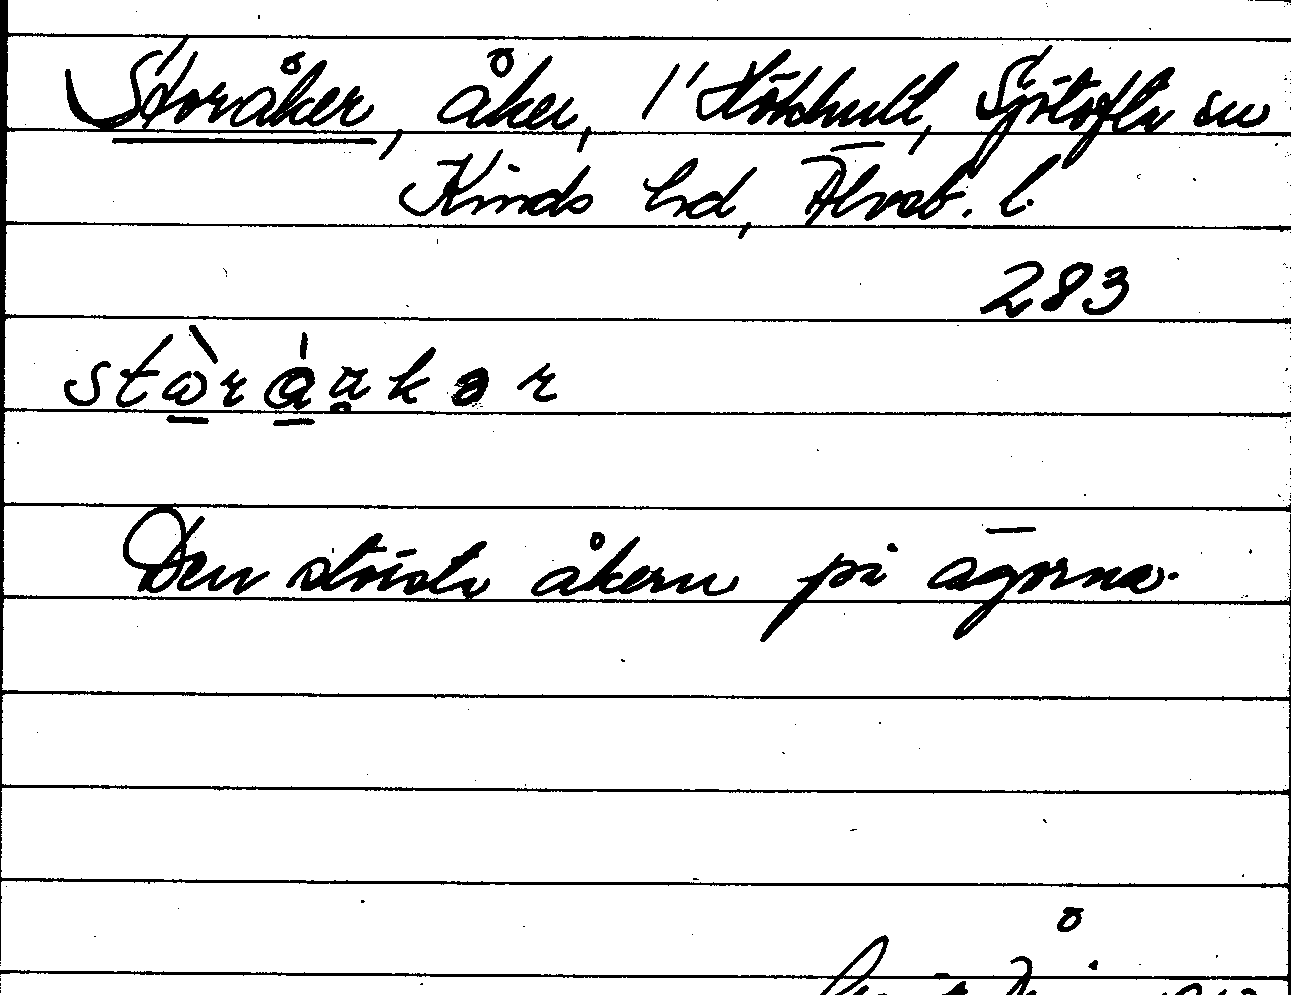 Storåker, åker, 1' Hökhult, Sjötofta sn
Kinds hd, Älvsb. l.
283
stωrαakər
Den största åkern på ägorna.